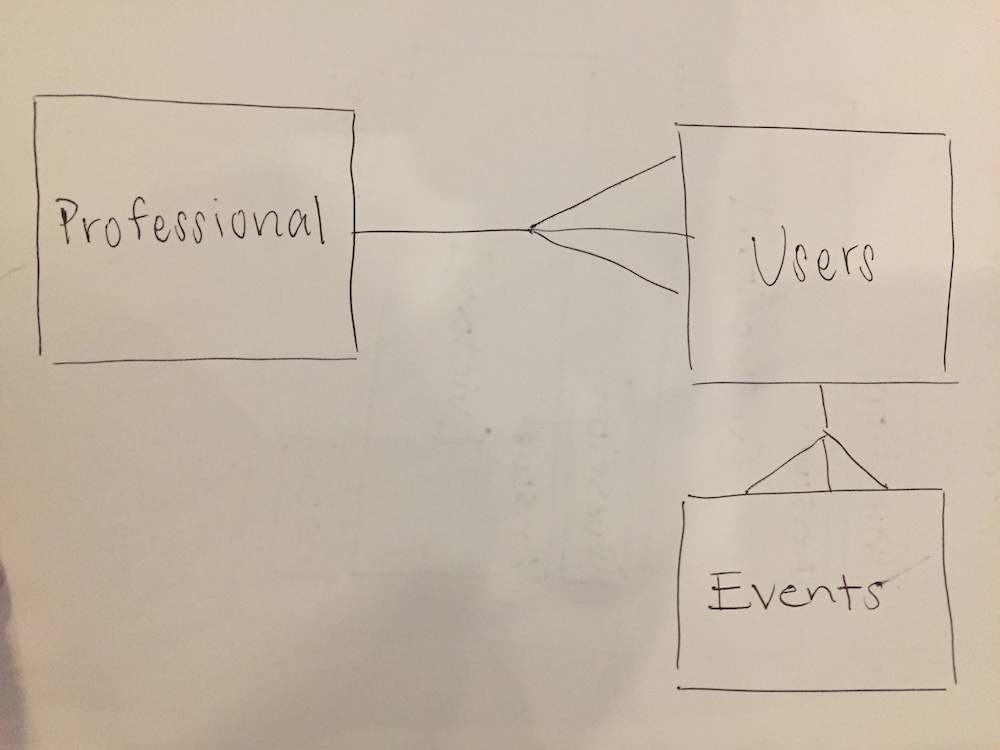 Professional
Users
Events